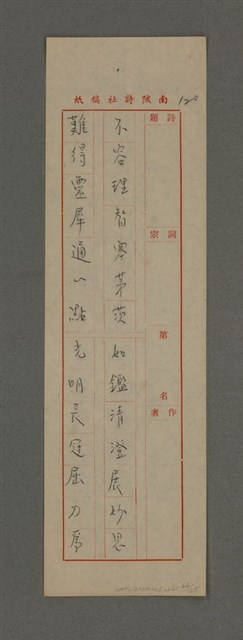 南陔詩社稿紙
120
詩題
詞宗
第 名
作者
不容理智塞茅茨 如鑑清澄展妙思
難得靈犀通一點 光明長冠屈刀為